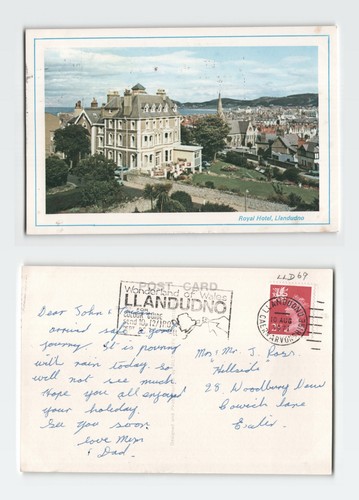 Royal Hotel, Llandudno
LLD69
POST CARD
Wonderland of Wales
LLANDUDNO
COLOUR GUIDE
send 10p P.O.
LLANDUDNO
CAERNARVON
Dear John &
arrived safe & good
journey. It is pouring
with rain today. so
will not see much.
Hope you all enjoyed
your holiday.
See you soon.
love Mum
& Dad.
Mrs & Mr. J. Ross.
"Hellards"
28. Woodbury View
Lane
Exeter